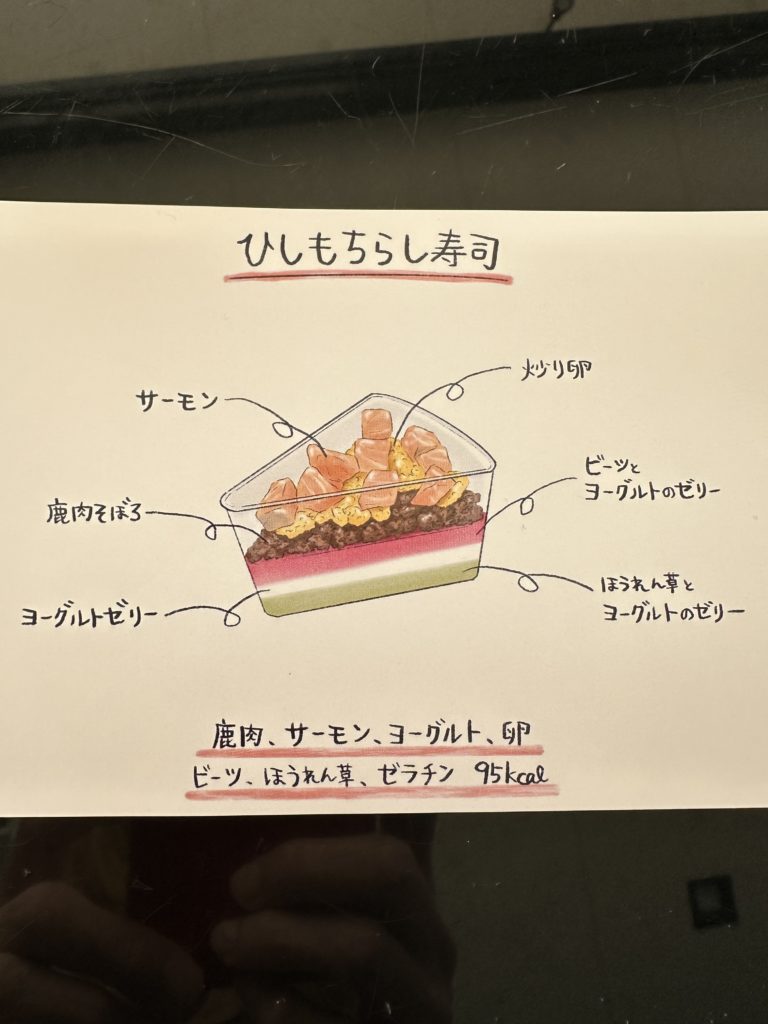 ひしもちらし寿司
サーモン
炒り卵
鹿肉そぼろ
ビーツと
ヨーグルトのゼリー
ヨーグルトゼリー
ほうれん草と
ヨーグルトのゼリー
鹿肉、サーモン、ヨーグルト、卵
ビーツ、ほうれん草、ゼラチン 95kcal